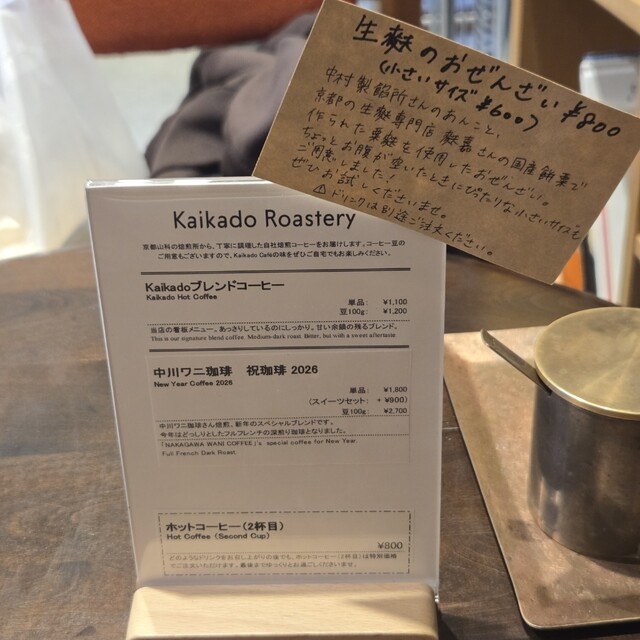 生麩のおぜんざい ¥800
(小さいサイズ ¥600)
中村製餡所さんのあんこと、
京都の生麩専門店 麩嘉さんの国産餅粟で
作られた粟麩を使用したおぜんざい。
ちょっとお腹が空いたときにぴったりな小さいサイズも
ご用意しました!
ぜひお試しくださいませ。
⚠ドリンクは別途ご注文ください。
Kaikado Roastery
京都山科の焙煎所から、丁寧に調理した自社焙煎コーヒーをお届けします。コーヒー豆の
ご用意もございますので、Kaikado Caféの味をぜひご自宅でもお楽しみください。
Kaikadoブレンドコーヒー
Kaikado Hot Coffee
単品: ¥1,100
豆100g: ¥1,200
当店の看板メニュー。あっさりしているのにしっかり。甘い余韻の残るブレンド。
This is our signature blend coffee. Medium-dark roast. Bitter, but with a sweet aftertaste.
中川ワニ珈琲 祝珈琲 2026
New Year Coffee 2026
単品: ¥1,800
(スイーツセット: + ¥900)
豆100g: ¥2,700
中川ワニ珈琲さん焙煎、新年のスペシャルブレンドです。
今年はどっしりとしたフルフレンチの深煎り珈琲となりました。
「NAKAGAWA WANI COFFEE」's special coffee for New Year.
Full French Dark Roast.
ホットコーヒー(2杯目)
Hot Coffee (Second Cup)
¥800
どのようなドリンクをお召し上がりの後でも、ホットコーヒー(2杯目)は特別価格
でご注文いただけます。最後までゆっくりとお過ごしくださいませ。